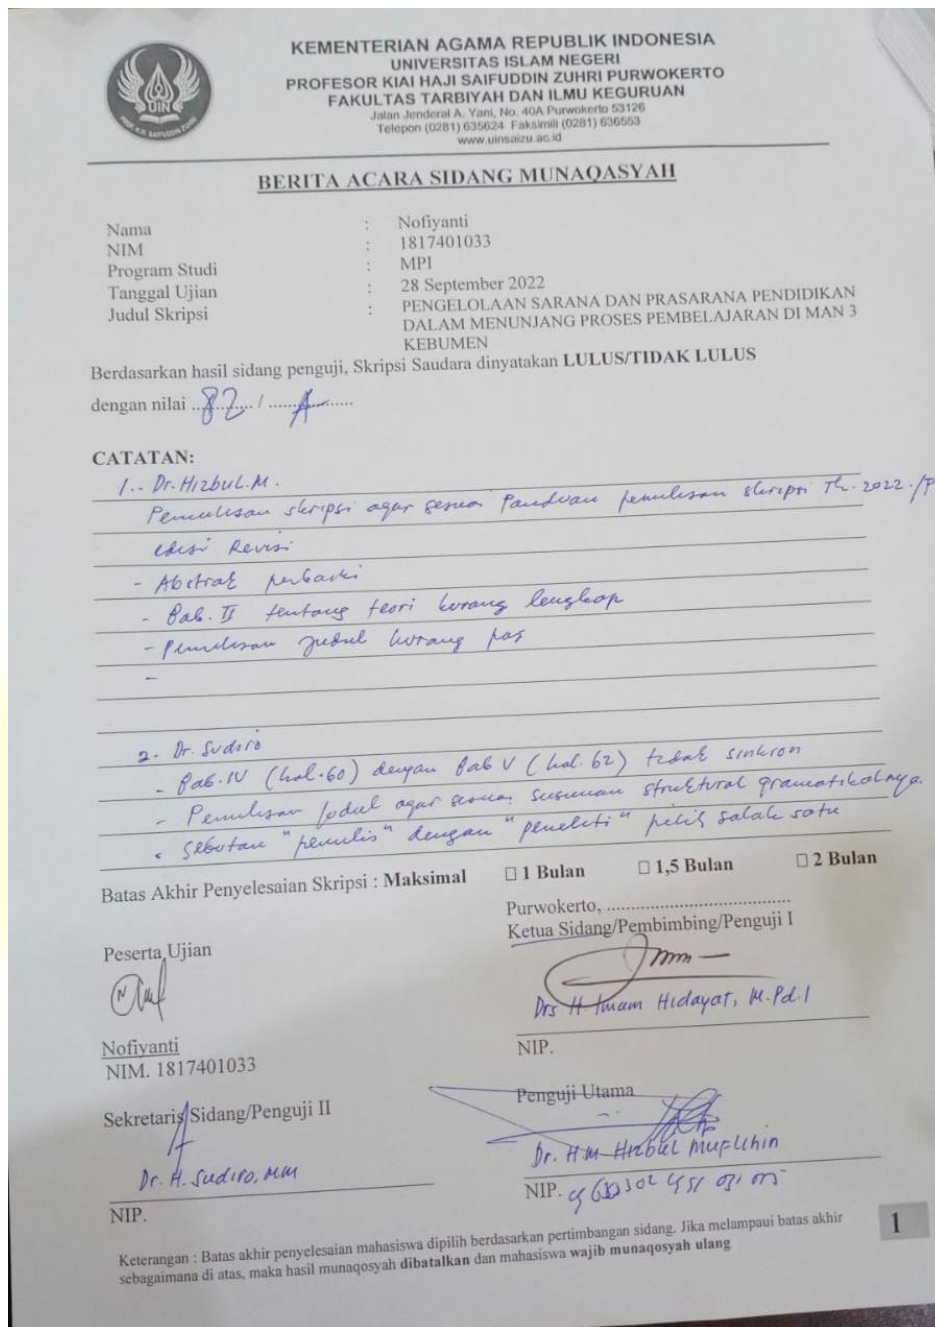 KEMENTERIAN AGAMA REPUBLIK INDONESIA
UNIVERSITAS ISLAM NEGERI
PROFESOR KIAI HAJI SAIFUDDIN ZUHRI PURWOKERTO
FAKULTAS TARBIYAH DAN ILMU KEGURUAN
Jalan Jenderal A. Yani, No. 40A Purwokerto 53126
Telepon (0281) 635624 Faksimili (0281) 636553
www.uinsaizu.ac.id
UIN
BERITA ACARA SIDANG MUNAQASYAH
Nama : Nofiyanti
NIM : 1817401033
Program Studi : MPI
Tanggal Ujian : 28 September 2022
Judul Skripsi : PENGELOLAAN SARANA DAN PRASARANA PENDIDIKAN
DALAM MENUNJANG PROSES PEMBELAJARAN DI MAN 3
KEBUMEN
Berdasarkan hasil sidang penguji, Skripsi Saudara dinyatakan LULUS/TIDAK LULUS
dengan nilai ..82.. / ..A..
CATATAN:
1.- Dr. Hizbul.M.
Penulisan skripsi agar sesuai Panduan penulisan skripsi Th. 2022
edisi Revisi
- Abstrak perbaiki
- Bab. II tentang teori kurang lengkap
- Penulisan judul kurang pas
-
2- Dr. Sudiro
- Bab. IV (hal. 60) dengan Bab V (hal. 62) tidak sinkron
- Penulisan judul agar sesuai susunan struktural gramatikalnya.
- Sebutan "penulis" dengan "peneliti" pilih salah satu
Batas Akhir Penyelesaian Skripsi : Maksimal □ 1 Bulan □ 1,5 Bulan □ 2 Bulan
Purwokerto, ......................................
Ketua Sidang/Pembimbing/Penguji I
Peserta Ujian
Drs H. Imam Hidayat, M.Pd.I
NIP.
Nofiyanti
NIM. 1817401033
Sekretaris Sidang/Penguji II
Penguji Utama
Dr. H. Sudiro, MM
NIP.
Dr. H.M. Hizbul Muflihin
NIP.
Keterangan : Batas akhir penyelesaian mahasiswa dipilih berdasarkan pertimbangan sidang. Jika melampaui batas akhir
sebagaimana di atas, maka hasil munaqosyah dibatalkan dan mahasiswa wajib munaqosyah ulang
1